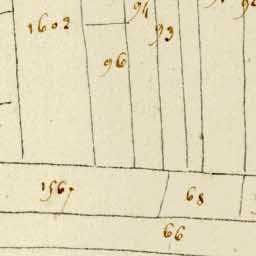 94
1602
93
96
1567
68
66